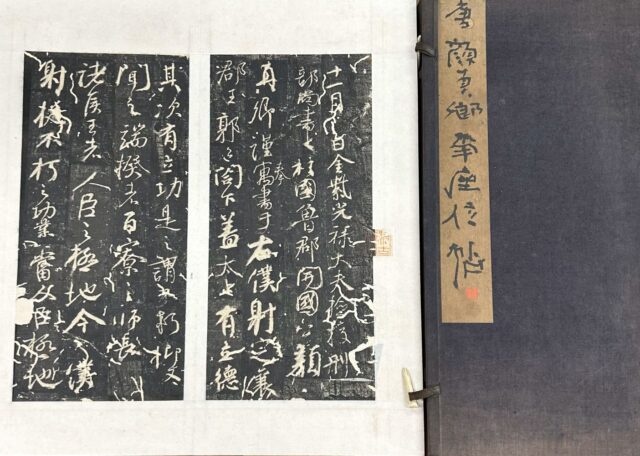 十一月日金紫光祿大夫檢校刑
部尚書上柱國魯郡開國公顏
真卿謹奉寓書于右僕射定襄
郡王郭公閣下蓋太上有立德
其次有立功是之謂不朽抑又
聞之端揆者百寮之師長
諸侯王者人臣之極地今僕
射挺不朽之功業當人臣極地
唐顏真卿爭座位帖